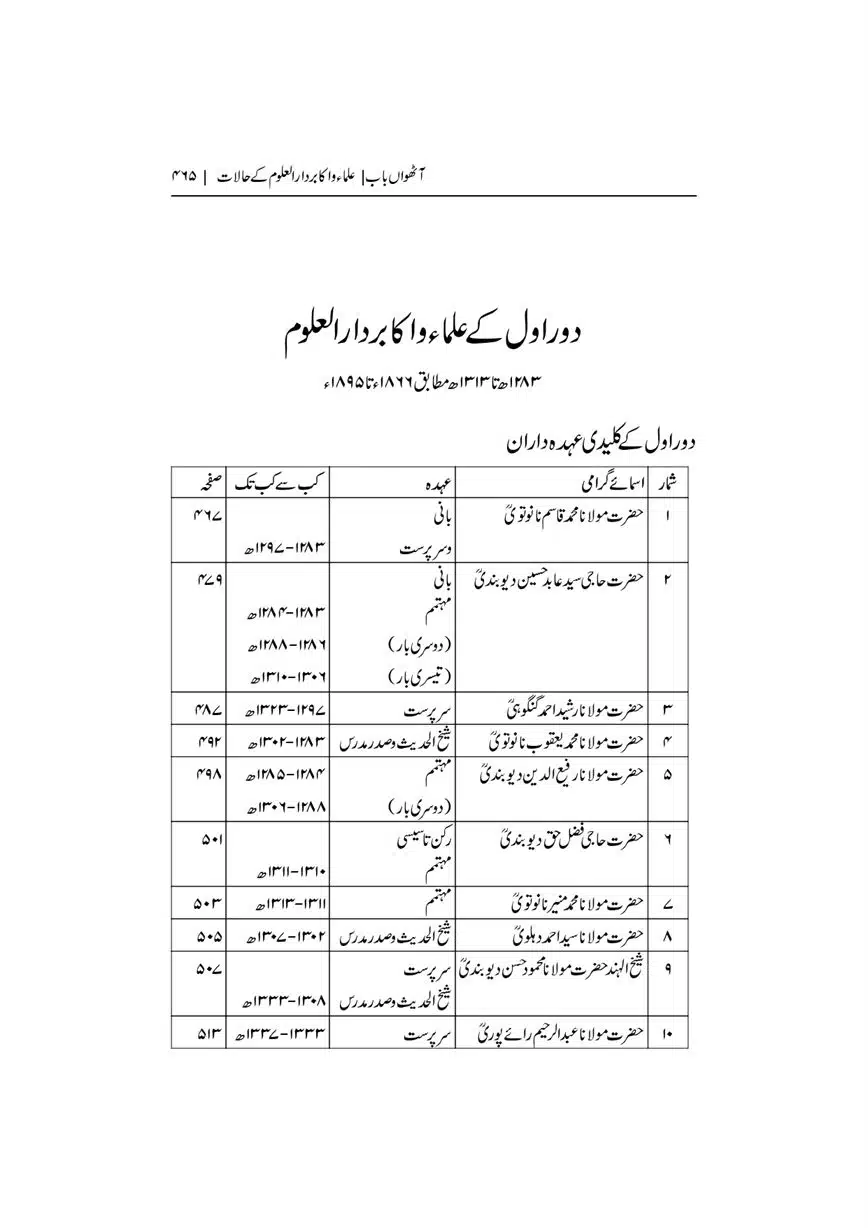 آٹھواں باب| علماء و اکابر دارالعلوم کے حالات | ۴۶۵
دور اول کے علماء و اکابر دارالعلوم
۱۲۸۳ھ تا ۱۳۱۳ھ مطابق ۱۸۶۶ء تا ۱۸۹۵ء
دور اول کے کلیدی عہدہ داران
شمار اسمائے گرامی عہدہ کب سے کب تک صفحہ
۱ حضرت مولانا محمد قاسم نانوتویؒ بانی ۴۶۷
وسرپرست ۱۲۸۳-۱۲۹۷ھ
۲ حضرت حاجی سید عابد حسین دیوبندیؒ بانی ۴۷۹
مہتمم ۱۲۸۳-۱۲۸۴ھ
(دوسری بار) ۱۲۸۶-۱۲۸۸ھ
(تیسری بار) ۱۳۰۶-۱۳۱۰ھ
۳ حضرت مولانا رشید احمد گنگوہیؒ سرپرست ۱۲۹۷-۱۳۲۳ھ ۴۸۷
۴ حضرت مولانا محمد یعقوب نانوتویؒ شیخ الحدیث وصدر مدرس ۱۲۸۳-۱۳۰۲ھ ۴۹۲
۵ حضرت مولانا رفیع الدین دیوبندیؒ مہتمم ۱۲۸۴-۱۲۸۵ھ ۴۹۸
(دوسری بار) ۱۲۸۸-۱۳۰۶ھ
۶ حضرت حاجی فضل حق دیوبندیؒ رکن تاسیسی ۵۰۱
مہتمم ۱۳۱۰-۱۳۱۱ھ
۷ حضرت مولانا محمد منیر نانوتویؒ مہتمم ۱۳۱۱-۱۳۱۳ھ ۵۰۳
۸ حضرت مولانا سید احمد دہلویؒ شیخ الحدیث وصدر مدرس ۱۳۰۲-۱۳۰۷ھ ۵۰۵
۹ شیخ الہند حضرت مولانا محمود حسن دیوبندیؒ سرپرست ۵۰۷
شیخ الحدیث وصدر مدرس ۱۳۰۸-۱۳۳۳ھ
۱۰ حضرت مولانا عبدالرحیم رائے پوریؒ سرپرست ۱۳۳۳-۱۳۳۷ھ ۵۱۳